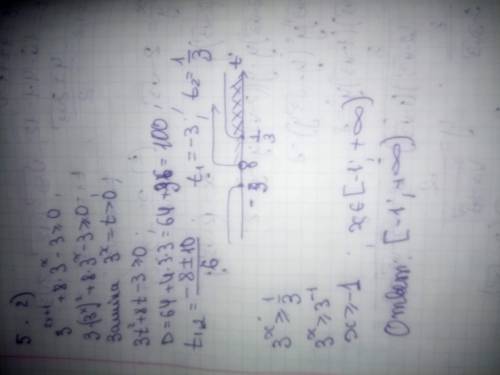 5. 2)
3²ˣ⁺¹ + 8·3ˣ - 3 ≥ 0;
3·(3ˣ)² + 8·3ˣ - 3 ≥ 0;
Заміна 3ˣ = t > 0;
3t² + 8t - 3 ≥ 0
D = 64 + 4·3·3 = 64 + 36 = 100;
t₁,₂ = (-8 ± 10)/6; t₁ = -3; t₂ = 1/3
-3 0 1/3 t
3ˣ ≥ 1/3
3ˣ ≥ 3⁻¹
x ≥ -1 x ∈ [-1; +∞)
Ответ: [-1; +∞)